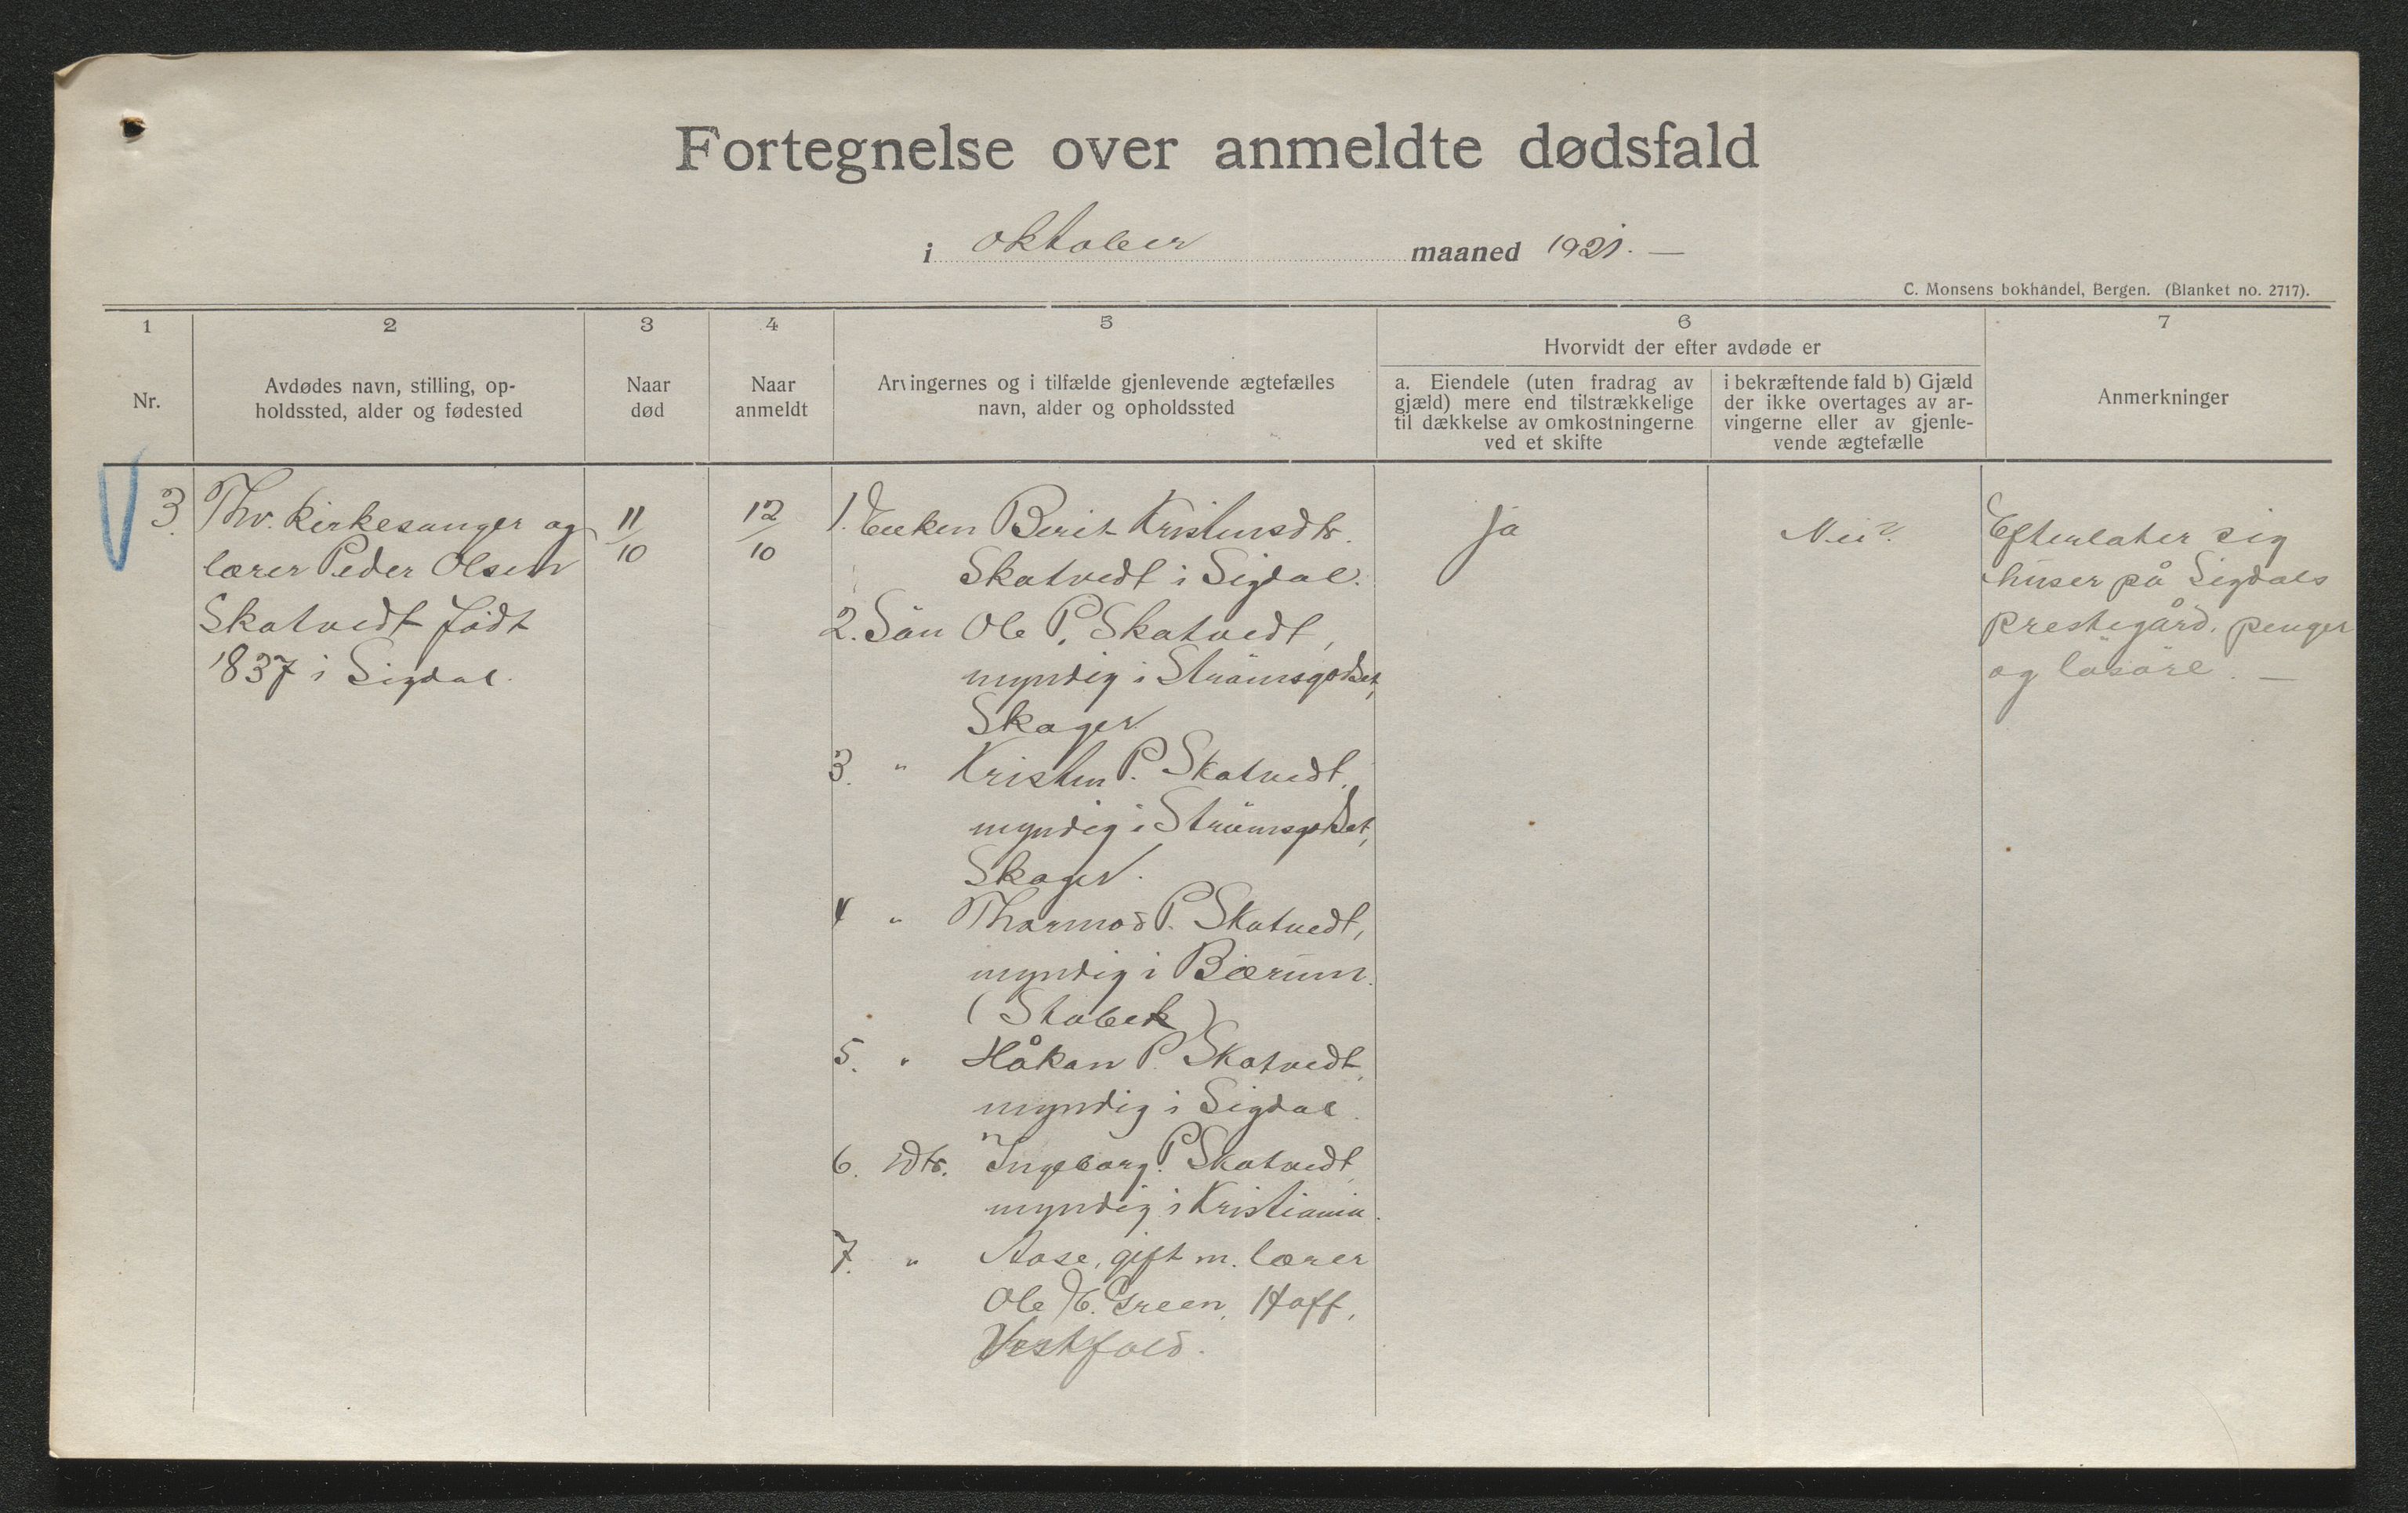 Fortegnelse over anmeldte dødsfald
i oktober maaned 1921. —
C. Monsens bokhandel, Bergen. (Blanket no. 2717).
1
Nr.
2
Avdødes navn, stilling, op-
holdssted, alder og fødested
3
Naar
død
4
Naar
anmeldt
5
Arvingernes og i tilfælde gjenlevende ægtefælles
navn, alder og opholdssted
6
Hvorvidt der efter avdøde er
a. Eiendele (uten fradrag av
gjæld) mere end tilstrækkelige
til dækkelse av omkostningerne
ved et skifte
i bekræftende fald b) Gjæld
der ikke overtages av ar-
vingerne eller av gjenle-
vende ægtefælle
7
Anmerkninger
3.
Fhv. kirkesanger og
lærer Peder Olsen
Skatvedt født
1837 i Sigdal.
11/10
12/10
1. Enken Berit Kristensdtr.
Skatvedt i Sigdal.
2. Sön Ole P. Skatvedt,
myndig i Strömsgodset,
Skoger
3. " Kristen P. Skatvedt,
myndig i Strömsgodset,
Skoger.
4 " Thormod P. Skatvedt,
myndig i Bærum.
(Stabek)
5. " Håkon P. Skatvedt,
myndig i Sigdal.
6. Dtr. Ingeborg P. Skatvedt,
myndig i Kristiania.
7. " Aase, gift m. lærer
Ole H. Green, Hoff,
Vestfold.
Ja
Nei?
Efterlater sig
huser på Sigdals
prestegård, penger
og lösöre. —